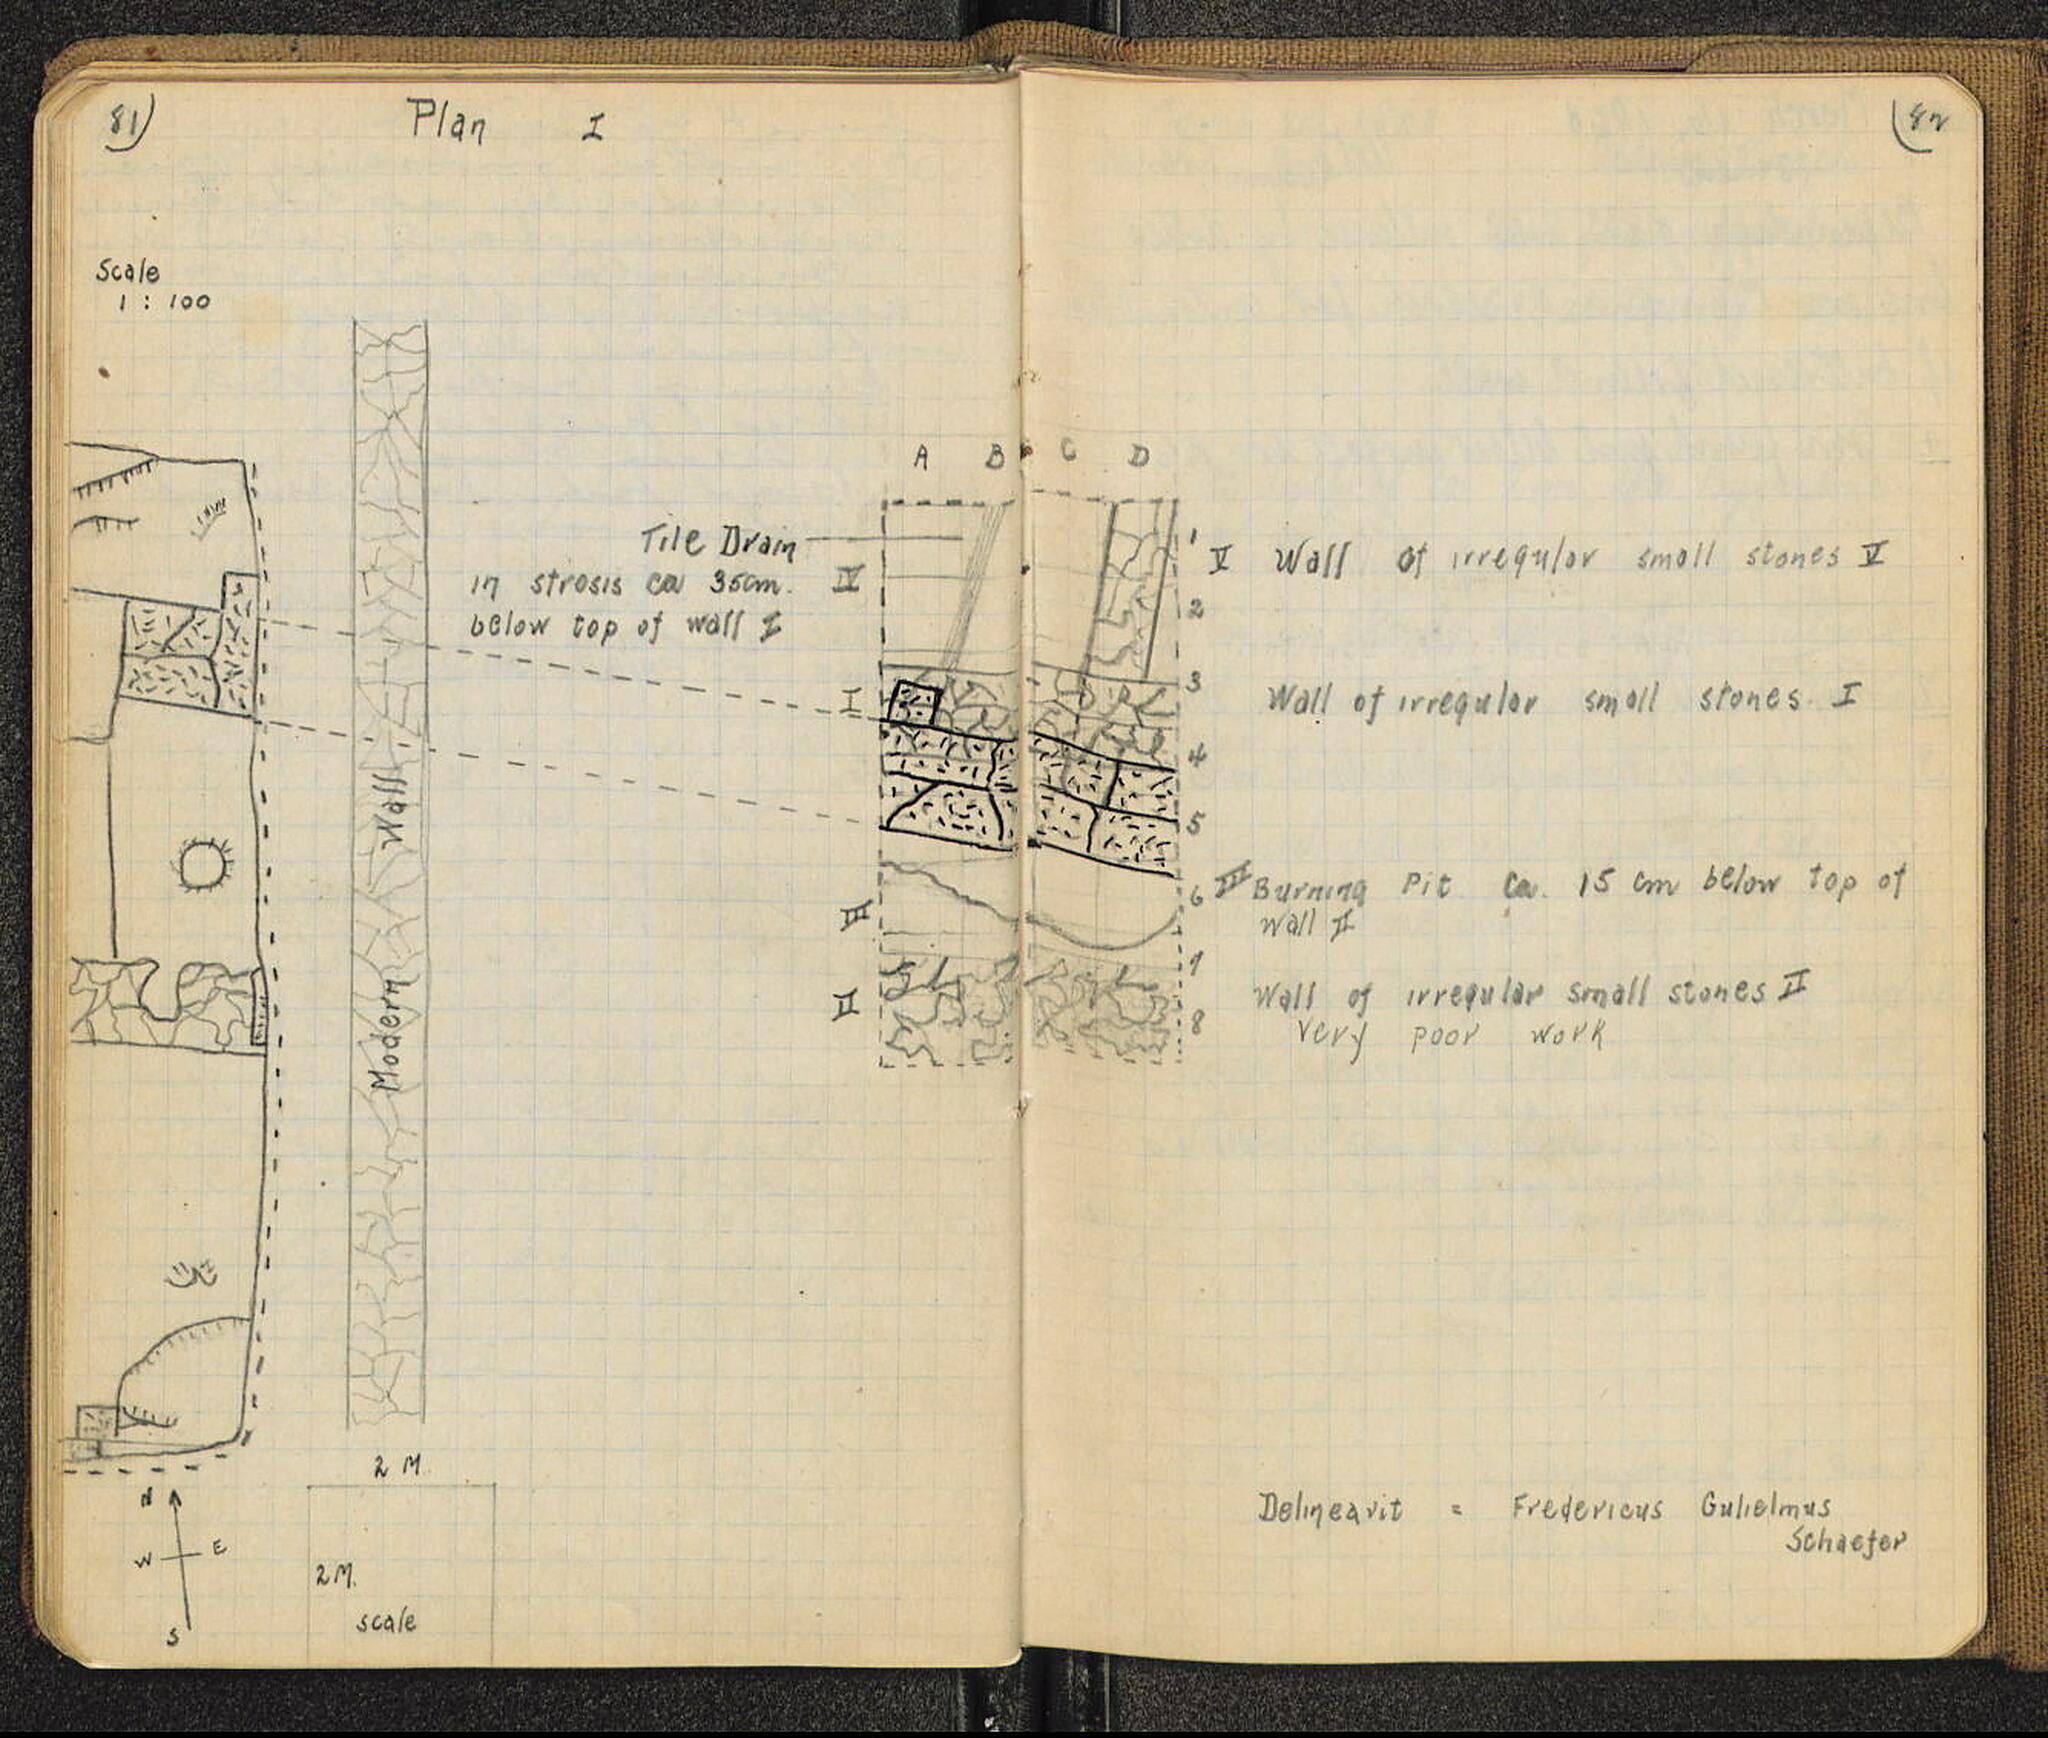 81)
Plan I
Scale
1 : 100
Tile Drain
in strosis ca 35cm.
below top of wall I
IV
I
III
II
Modern Wall
2 M.
2 M.
scale
N
W E
S
(82
A B C D
1
2
3
4
5
6
7
8
V Wall of irregular small stones V
Wall of irregular small stones. I
III Burning Pit ca. 15 cm below top of
wall II
Wall of irregular small stones II
very poor work
Delineavit = Fredericus Gulielmus
Schaefer